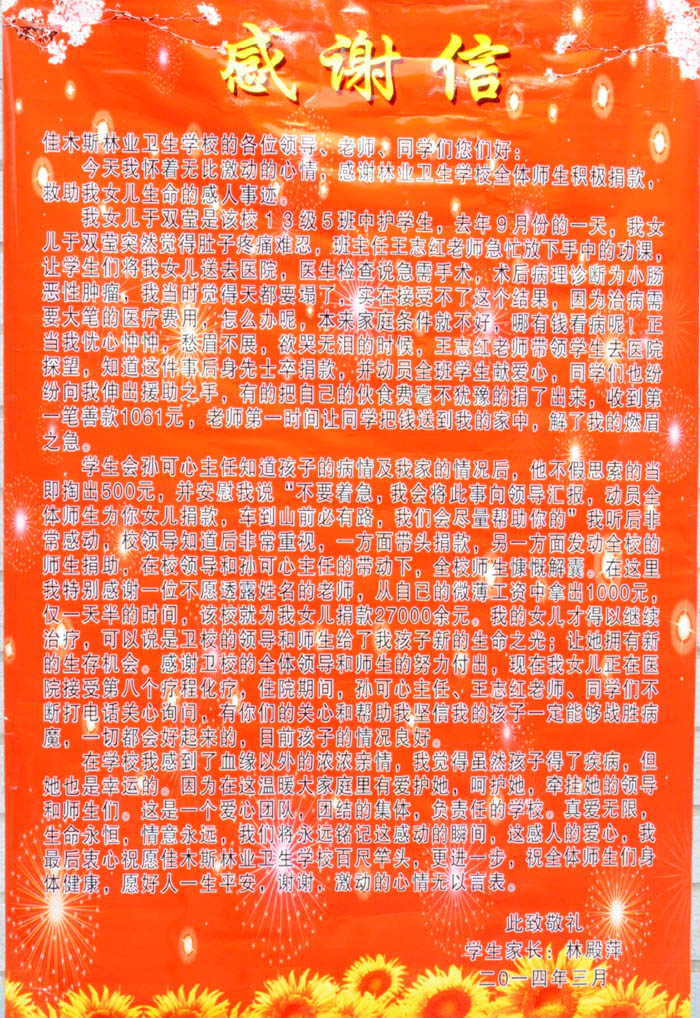 感谢信
佳木斯林业卫生学校的各位领导、老师、同学们您们好：
今天我怀着无比激动的心情，感谢林业卫生学校全体师生积极捐款，
救助我女儿生命的感人事迹。
我女儿于双莹是该校１３级５班中护学生，去年９月份的一天，我女
儿于双莹突然觉得肚子疼痛难忍，班主任王志红老师急忙放下手中的功课，
让学生们将我女儿送去医院，医生检查说急需手术，术后病理诊断为小肠
恶性肿瘤，我当时觉得天都要塌了，实在接受不了这个结果，因为治病需
要大笔的医疗费用，怎么办呢，本来家庭条件就不好，哪有钱看病呢！正
当我忧心忡忡，愁眉不展，欲哭无泪的时候，王志红老师带领学生去医院
探望，知道这件事后身先士卒捐款，并动员全班学生献爱心，同学们也纷
纷向我伸出援助之手，有的把自己的伙食费毫不犹豫的捐了出来，收到第
一笔善款1061元，老师第一时间让同学把钱送到我的家中，解了我的燃眉
之急。
学生会孙可心主任知道孩子的病情及我家的情况后，他不假思索的当
即掏出500元，并安慰我说“不要着急，我会将此事向领导汇报，动员全
体师生为你女儿捐款，车到山前必有路，我们会尽量帮助你的”我听后非
常感动，校领导知道后非常重视，一方面带头捐款，另一方面发动全校的
师生捐助，在校领导和孙可心主任的带动下，全校师生慷慨解囊。在这里
我特别感谢一位不愿透露姓名的老师，从自已的微薄工资中拿出1000元，
仅一天半的时间，该校就为我女儿捐款27000余元。我的女儿才得以继续
治疗，可以说是卫校的领导和师生给了我孩子新的生命之光；让她拥有新
的生存机会。感谢卫校的全体领导和师生的努力付出，现在我女儿正在医
院接受第八个疗程化疗，住院期间，孙可心主任、王志红老师、同学们不
断打电话关心询问，有你们的关心和帮助我坚信我的孩子一定能够战胜病
魔，一切都会好起来的，目前孩子的情况良好。
在学校我感到了血缘以外的浓浓亲情，我觉得虽然孩子得了疾病，但
她也是幸运的。因为在这温暖大家庭里有爱护她，呵护她，牵挂她的领导
和师生们。这是一个爱心团队，团结的集体，负责任的学校。真爱无限，
生命永恒，情意永远，我们将永远铭记这感动的瞬间，这感人的爱心，我
最后衷心祝愿佳木斯林业卫生学校百尺竿头，更进一步，祝全体师生们身
体健康，愿好人一生平安，谢谢，激动的心情无以言表。
此致敬礼
学生家长：林殿萍
二０一四年三月